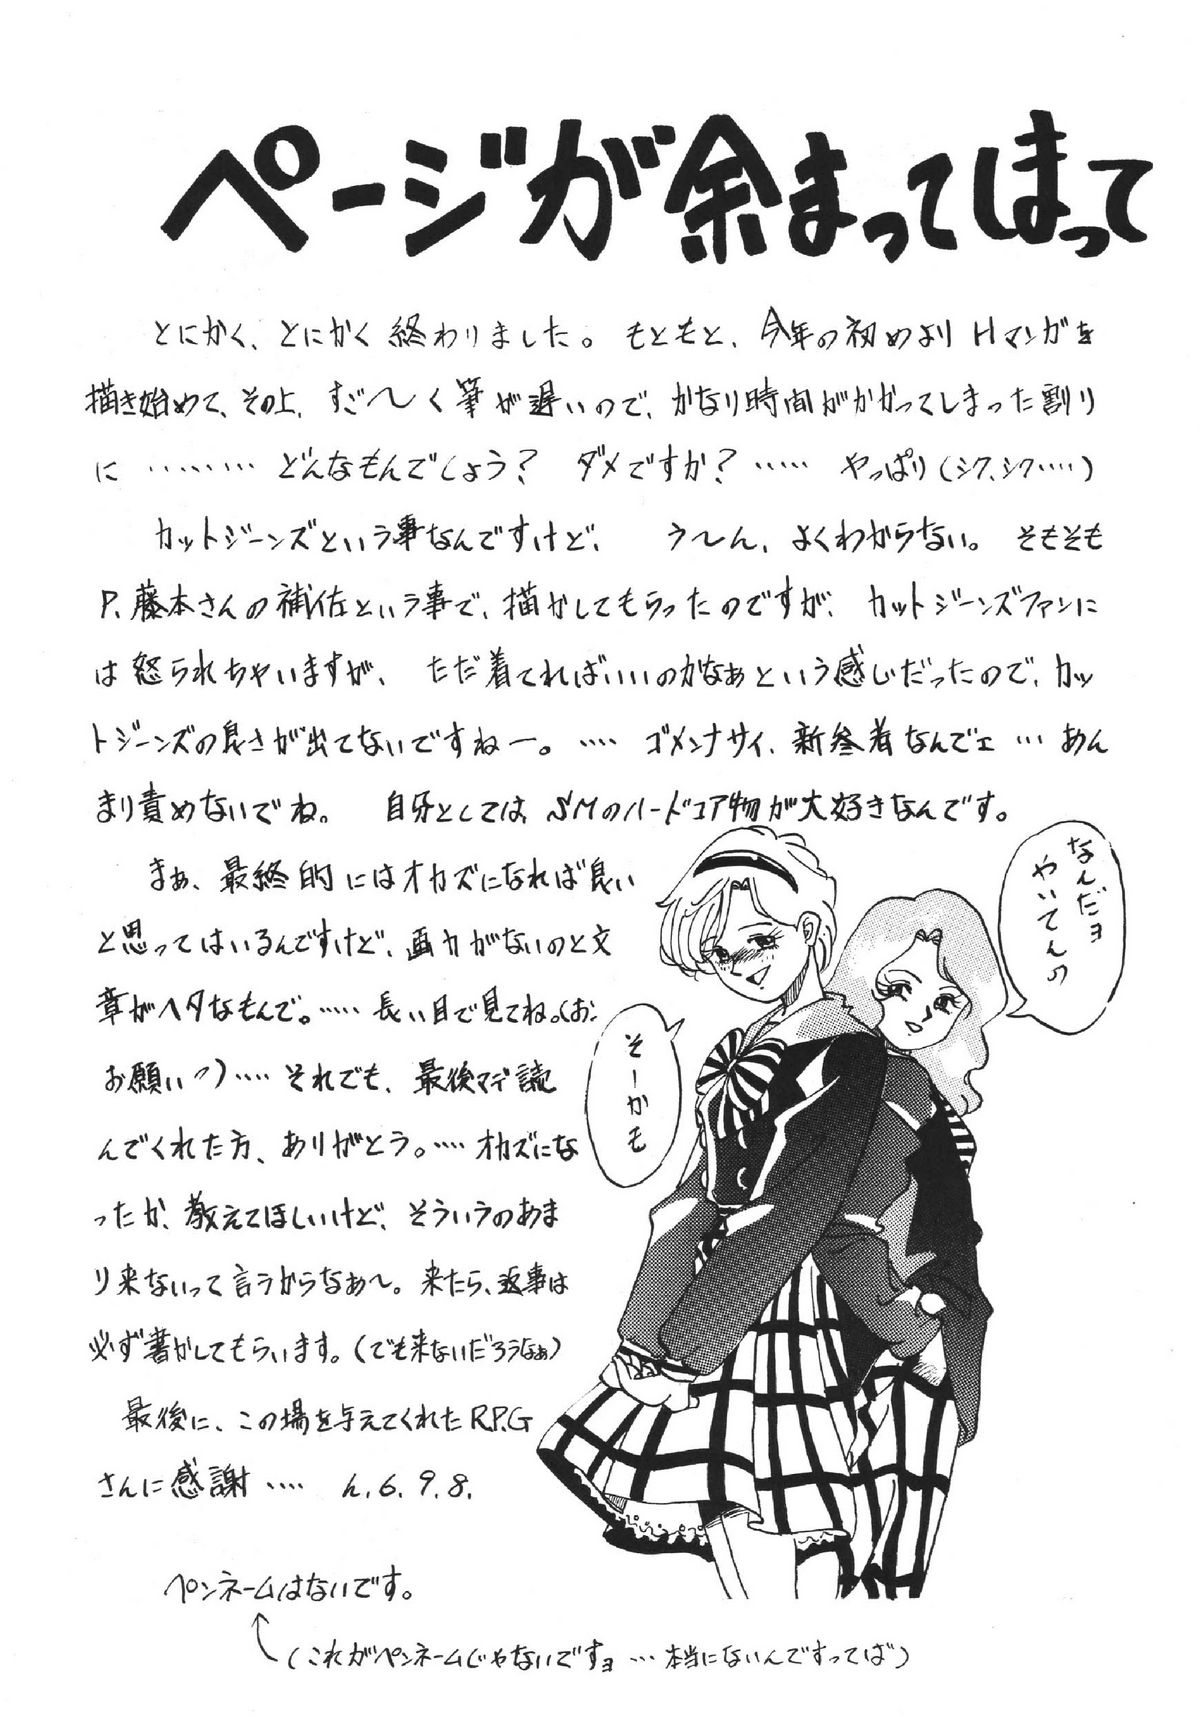 ページが余まってしまって
とにかく、とにかく終わりました。もともと、今年の初めよりHマンガを
描き始めて、その上、すご〜く筆が遅いので、かなり時間がかかってしまった割り
に ……… どんなもんでしょう? ダメですか? …… やっぱり(シク、シク……)
カットジーンズという事なんですけど、 う〜ん、よくわからない。そもそも
P.藤本さんの補佐という事で、描かしてもらったのですが、カットジーンズファンに
は怒られちゃいますが、ただ着てればいいのかなぁという感じだったので、カッ
トジーンズの良さが出てないですねー。…… ゴメンナサイ、新参者なんでェ … あん
まり責めないでね。 自分としては、SMのハードコア物が大好きなんです。
まぁ、最終的にはオカズになれば良い
と思ってはいるんですけど、画力がないのと文
章がヘタなもんで。…… 長い目で見てね。(お、
お願いっ)…… それでも、最後マデ読
んでくれた方、ありがとう。…… オカズにな
ったか、教えてほしいけど、そういうのあま
り来ないって言うからなぁ〜。来たら、返事は
必ず書かしてもらいます。(でも来ないだろうなぁ)
最後に、この場を与えてくれたR.P.G
さんに感謝 …… 6.9.8.
ペンネームはないです。
(これがペンネームじゃないですョ … 本当にないんですってば)
なんだョ
やいてんの
そーかも